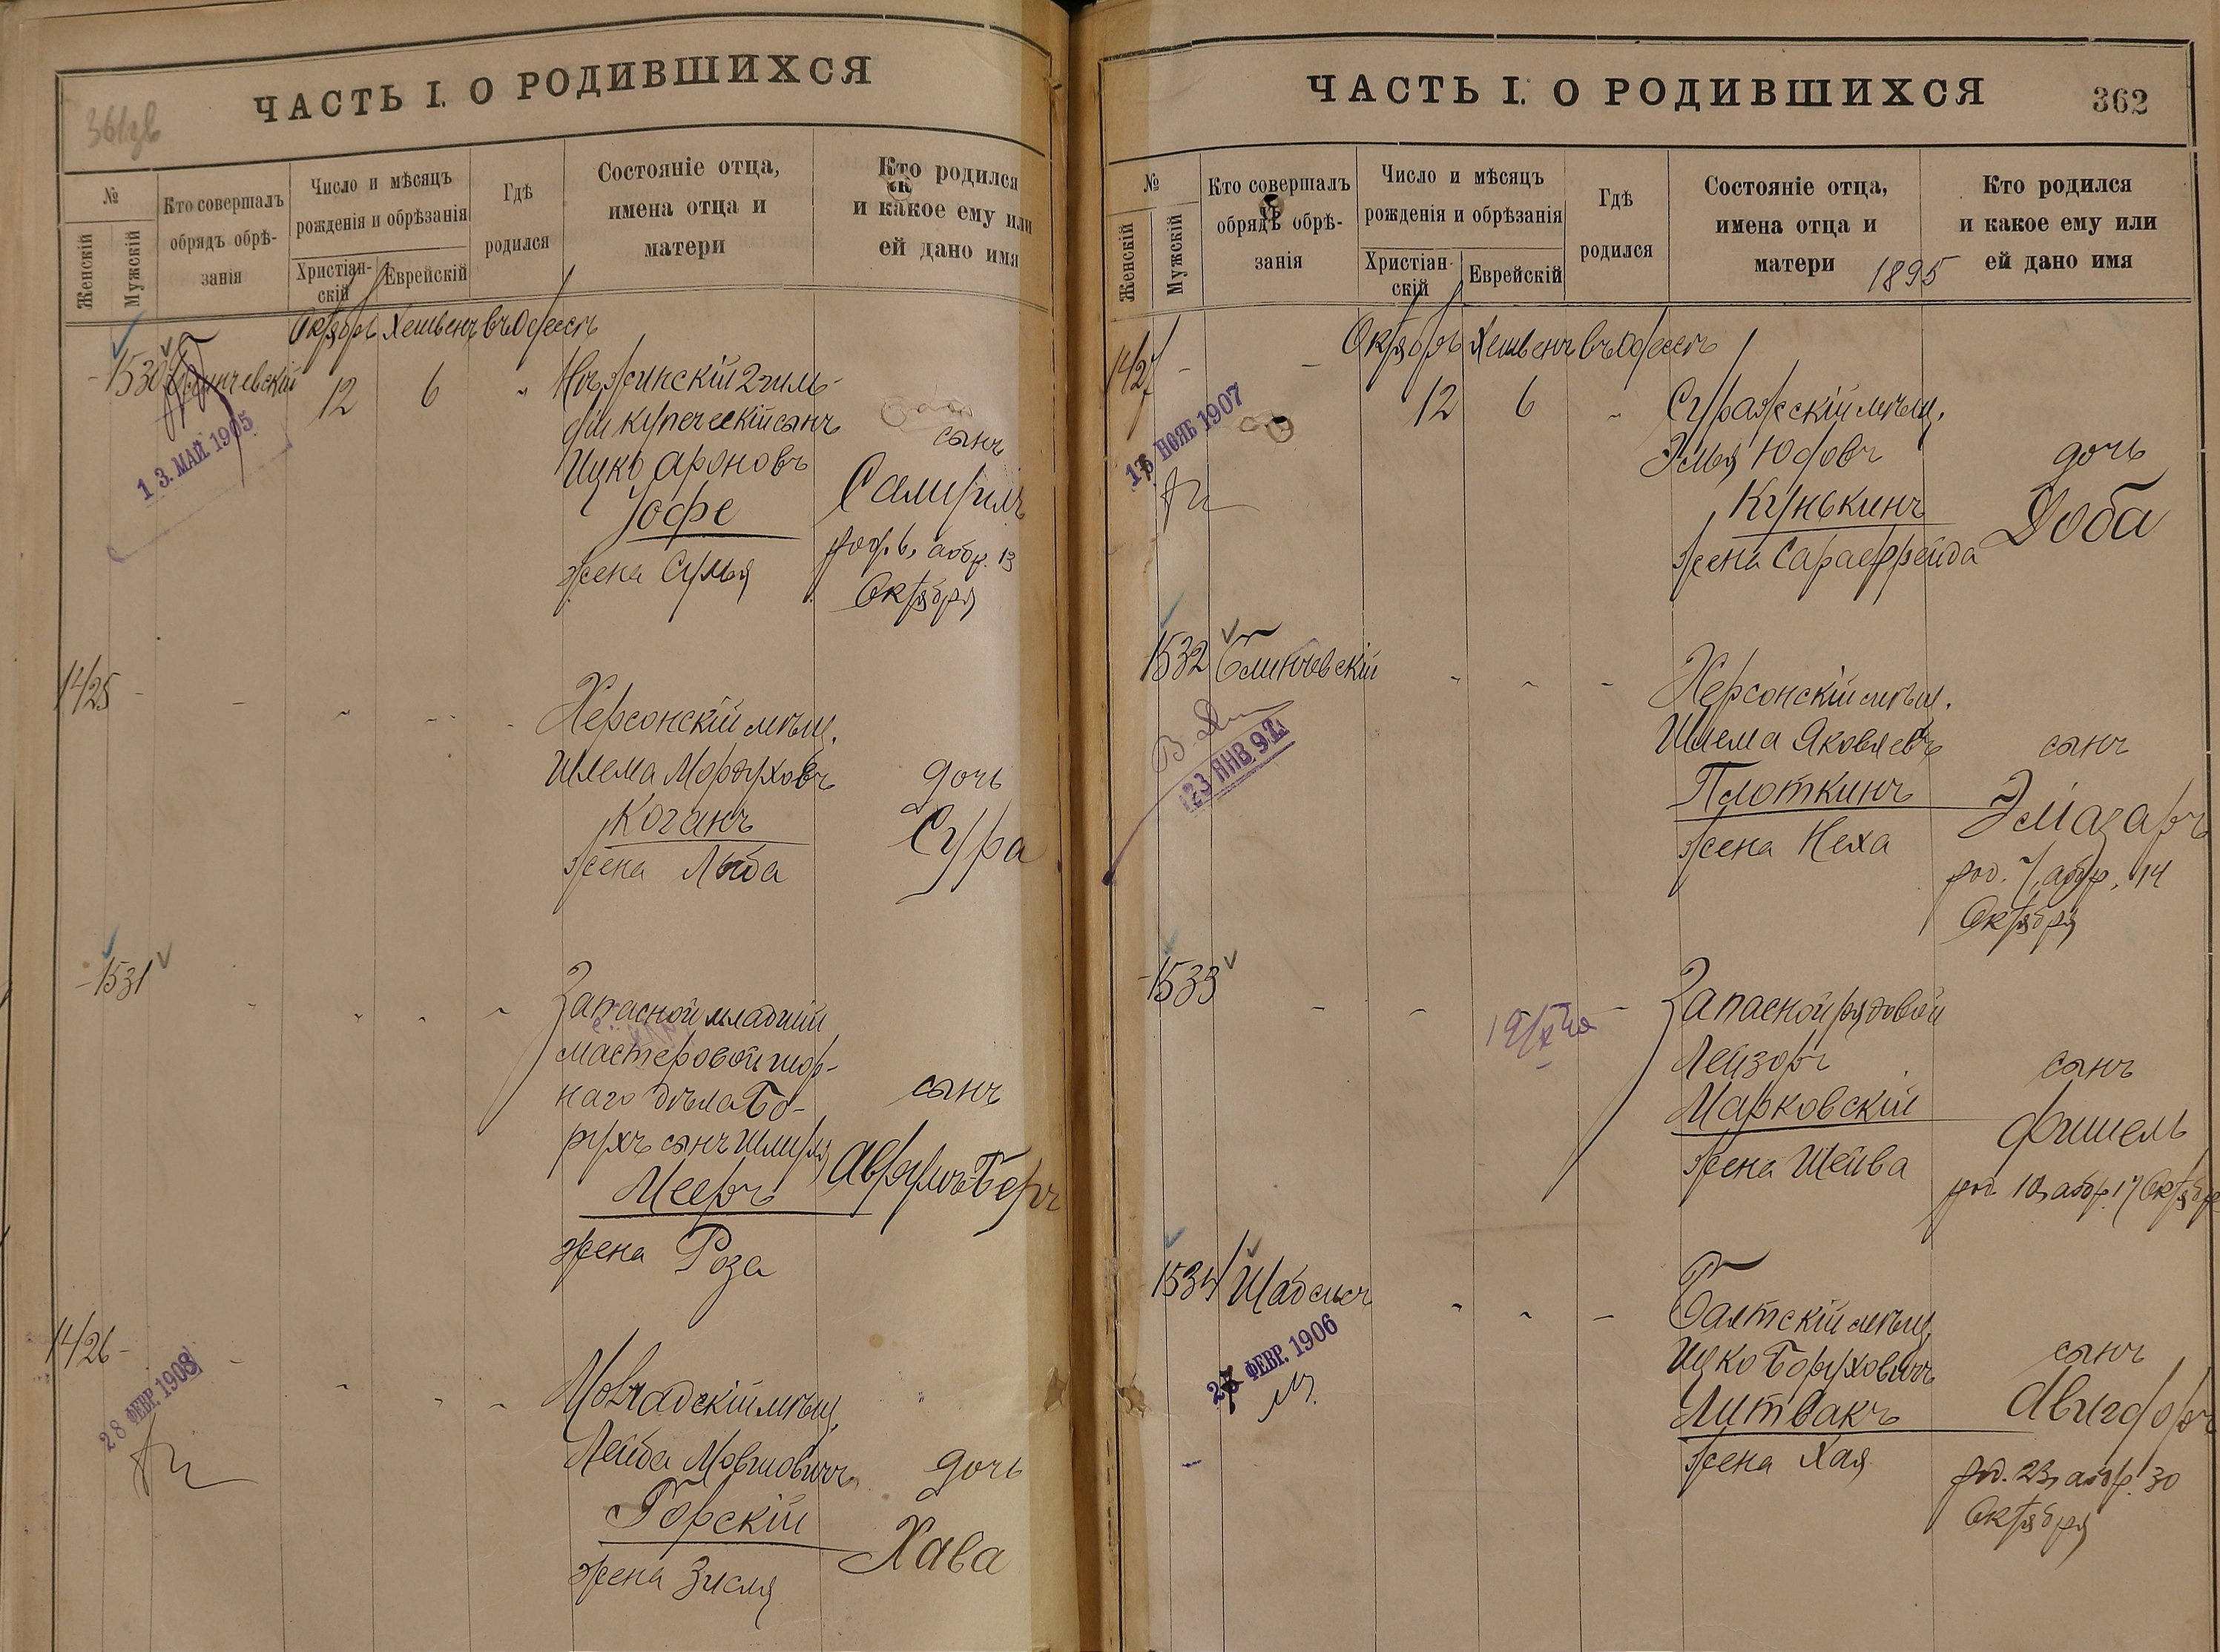 ЧАСТЬ I. О РОДИВШИХСЯ
№
Женскій
Мужскій
Кто совершалъ
обрядъ обрѣ-
занія
Число и мѣсяцъ
рожденія и обрѣзанія
Христіан-
скій
Еврейскій
Гдѣ
родился
Состояніе отца,
имена отца и
матери
Кто родился
и какое ему или
ей дано имя
Октябрь Хешвенъ въ Одессѣ
1530
12 6 "
Нѣжинскій 2 гиль-
діи купеческій сынъ
Ицко Ароновъ
Іофе
жена Сулья
сынъ
Самуилъ
род. 6, а обр. 13
Октября
13. МАЙ 1905
1425
Херсонскій мѣщ.
Шлема Мордуховъ
Коганъ
жена Лыба
дочь
Сура
1531
Запасной младшій
мастеровой шор-
наго дѣла Бо-
рухъ сынъ Шмуля
Мееръ
жена Роза
сынъ
Аврумъ-Беръ
1426
Мовчадскій мѣщ.
Лейба Мовшовичъ
Горскій
жена Зисля
дочь
Хава
28 ФЕВР. 1908
ЧАСТЬ I. О РОДИВШИХСЯ
362
№
Женскій
Мужскій
Кто совершалъ
обрядъ обрѣ-
занія
Число и мѣсяцъ
рожденія и обрѣзанія
Христіан-
скій
Еврейскій
Гдѣ
родился
Состояніе отца,
имена отца и
матери
1895
Кто родился
и какое ему или
ей дано имя
Октябрь Хешвенъ въ Одессѣ
1427
12 6 "
Суражскій мѣщ.
Элья Юдовъ
Кунькинъ
жена Сара Фрейда
дочь
Доба
НОЯБ 1907
1532 Блинчевскій
Херсонскій мѣщ.
Шлема Яковлевъ
Плоткинъ
жена Неха
сынъ
Эліазаръ
род. 7, а обр. 14
Октября
23 ЯНВ 9
1533
Запасной рядовой
Лейзоръ
Марковскій
жена Шейва
сынъ
Фишель
род. 10, а обр. 17 Октября
1534 Шабсисъ
Балтскій мѣщ.
Ицко Боруховичъ
Литвакъ
жена Хая
сынъ
Авигдоръ
род. 23, а обр. 30
Октября
ФЕВР. 1906